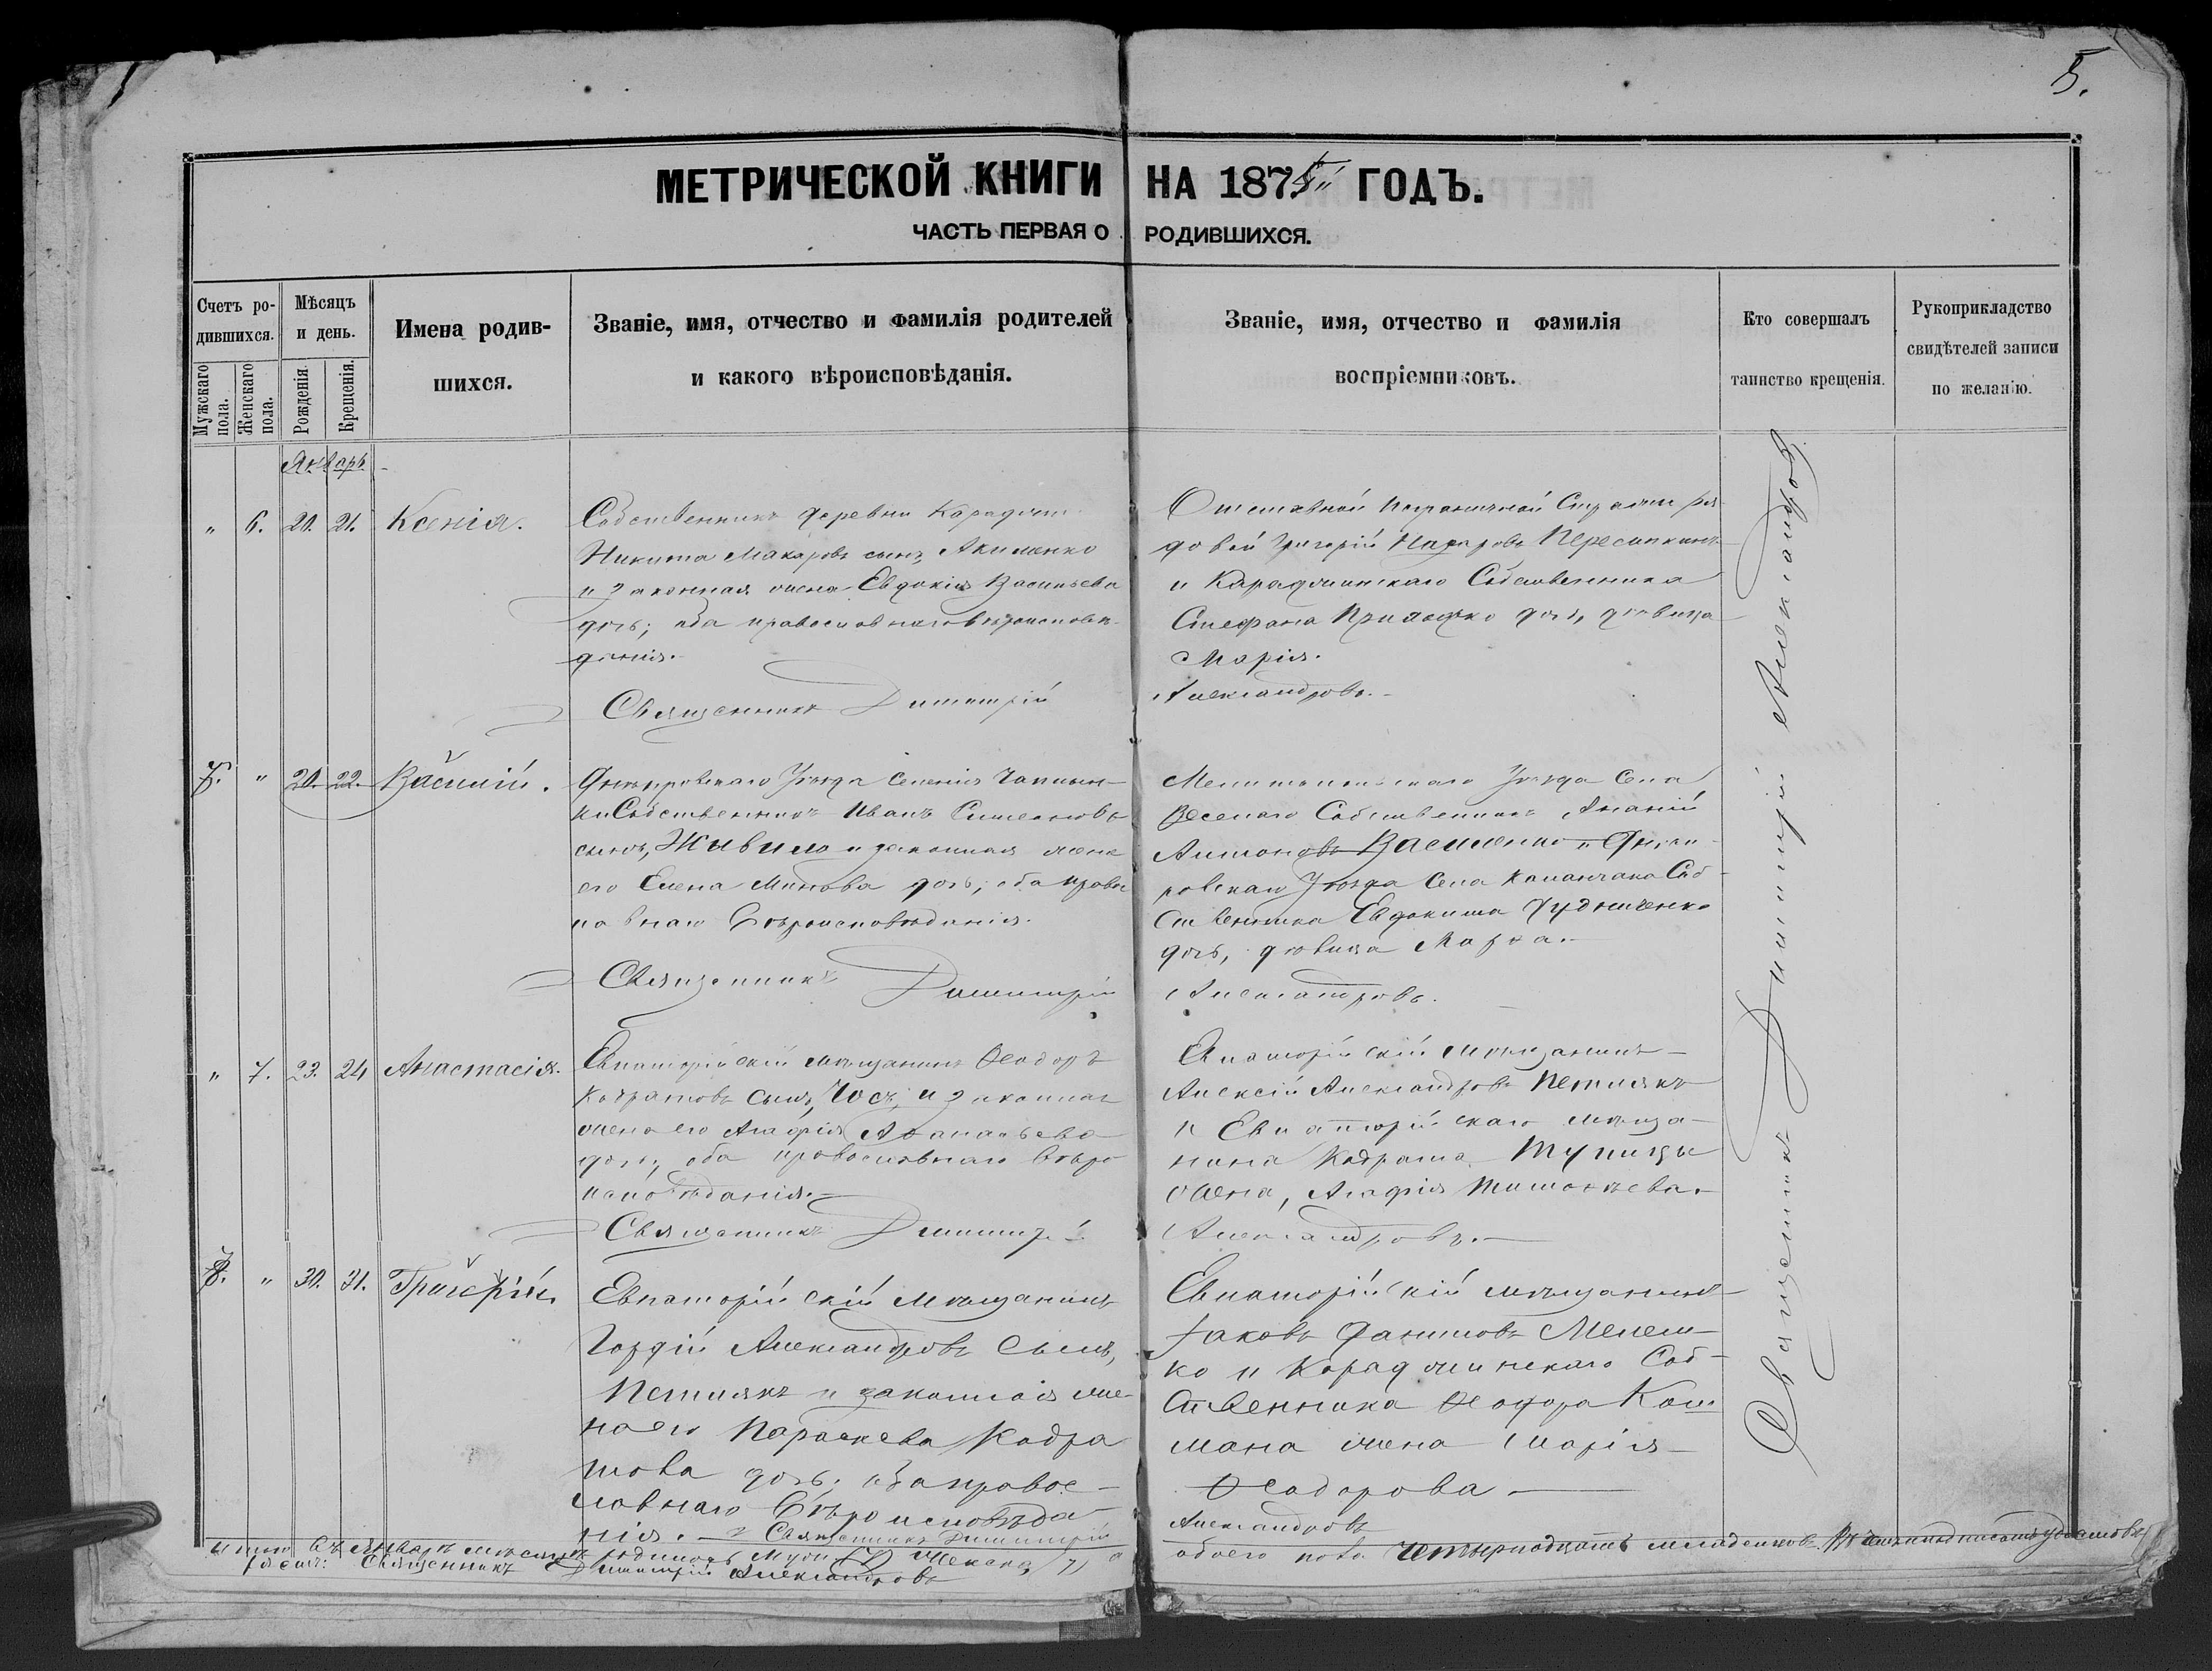 5.
МЕТРИЧЕСКОЙ КНИГИ НА 1875 ГОДЪ.
ЧАСТЬ ПЕРВАЯ О РОДИВШИХСЯ.
Счетъ ро-
дившихся.
Мужскаго пола.
Женскаго пола.
Мѣсяцъ
и день.
Рожденія.
Крещенія.
Имена родив-
шихся.
Званіе, имя, отчество и фамилія родителей
и какого вѣроисповѣданія.
Званіе, имя, отчество и фамилія
воспріемниковъ.
Кто совершалъ
таинство крещенія.
Рукоприкладство
свидѣтелей записи
по желанію.
Январь
" 6. 20. 21. Ксенія.
Собственникъ деревни
Никита Макаровъ сынъ, Акименко
и законная жена Евдокія Васильева
дочь; оба православнаго вѣроисповѣ-
данія.
Священникъ Димитрій
Отставной Пограничной Стражи ря-
довой Григорій Назаровъ
и Караджинскаго Собственника
Стефана дочь, дѣвица
Марія.
Александровъ.
" 20. 22. Василій.
Днѣпровскаго Уѣзда Селенія Чаплын-
ки Собственникъ Иванъ Симеоновъ
сынъ, Живило и законная жена
его Елена Минова дочь; оба право
славнаго Вѣроисповѣданія.
Священникъ Димитрій
Мелитопольскаго Уѣзда Села
Веселаго Собственникъ Ананій
Антоновъ Василенко и Днѣп-
ровскаго Уѣзда Села Каланчака Соб-
ственника Евдокима Чудниченко
дочь, дѣвица Марѳа.
Александровъ.
" 7. 23. 24 Анастасія.
Евпаторійскій мѣщанинъ Ѳеодоръ
Кодратовъ сынъ, и законная
жена его Агафія Аѳанасьева
дочь, оба православнаго вѣро
исповѣданія.
Священникъ Димитрій
Евпаторійскій мѣщанинъ
Алексій Александровъ Петлякъ
и Евпаторійскаго мѣща-
нина Кодрата Тупицы
жена, Агафія Тимоѳѣева.
Александровъ.
" 30. 31. Григорій.
Евпаторійскій мѣщанинъ
Гордій Александровъ сынъ,
Петлякъ и законная же-
на его Параскева Кодра
това дочь, оба правос-
лавнаго Вѣроисповѣда
нія. Священникъ Димитрій
Евпаторійскій мѣщанинъ
Іаковъ Даниловъ Мелеш-
ко и Караджинскаго Соб-
ственника Ѳеодора
мана жена Марія
Ѳеодорова
Александровъ
Священникъ Димитрій Александровъ
Итого въ Январѣ мѣсяцѣ родилось Муж. Женска 7, а
обоего пола четырнадцать младенцовъ.
Священникъ Димитрій Александровъ